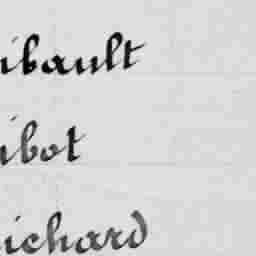 ibault
ibot
ichard